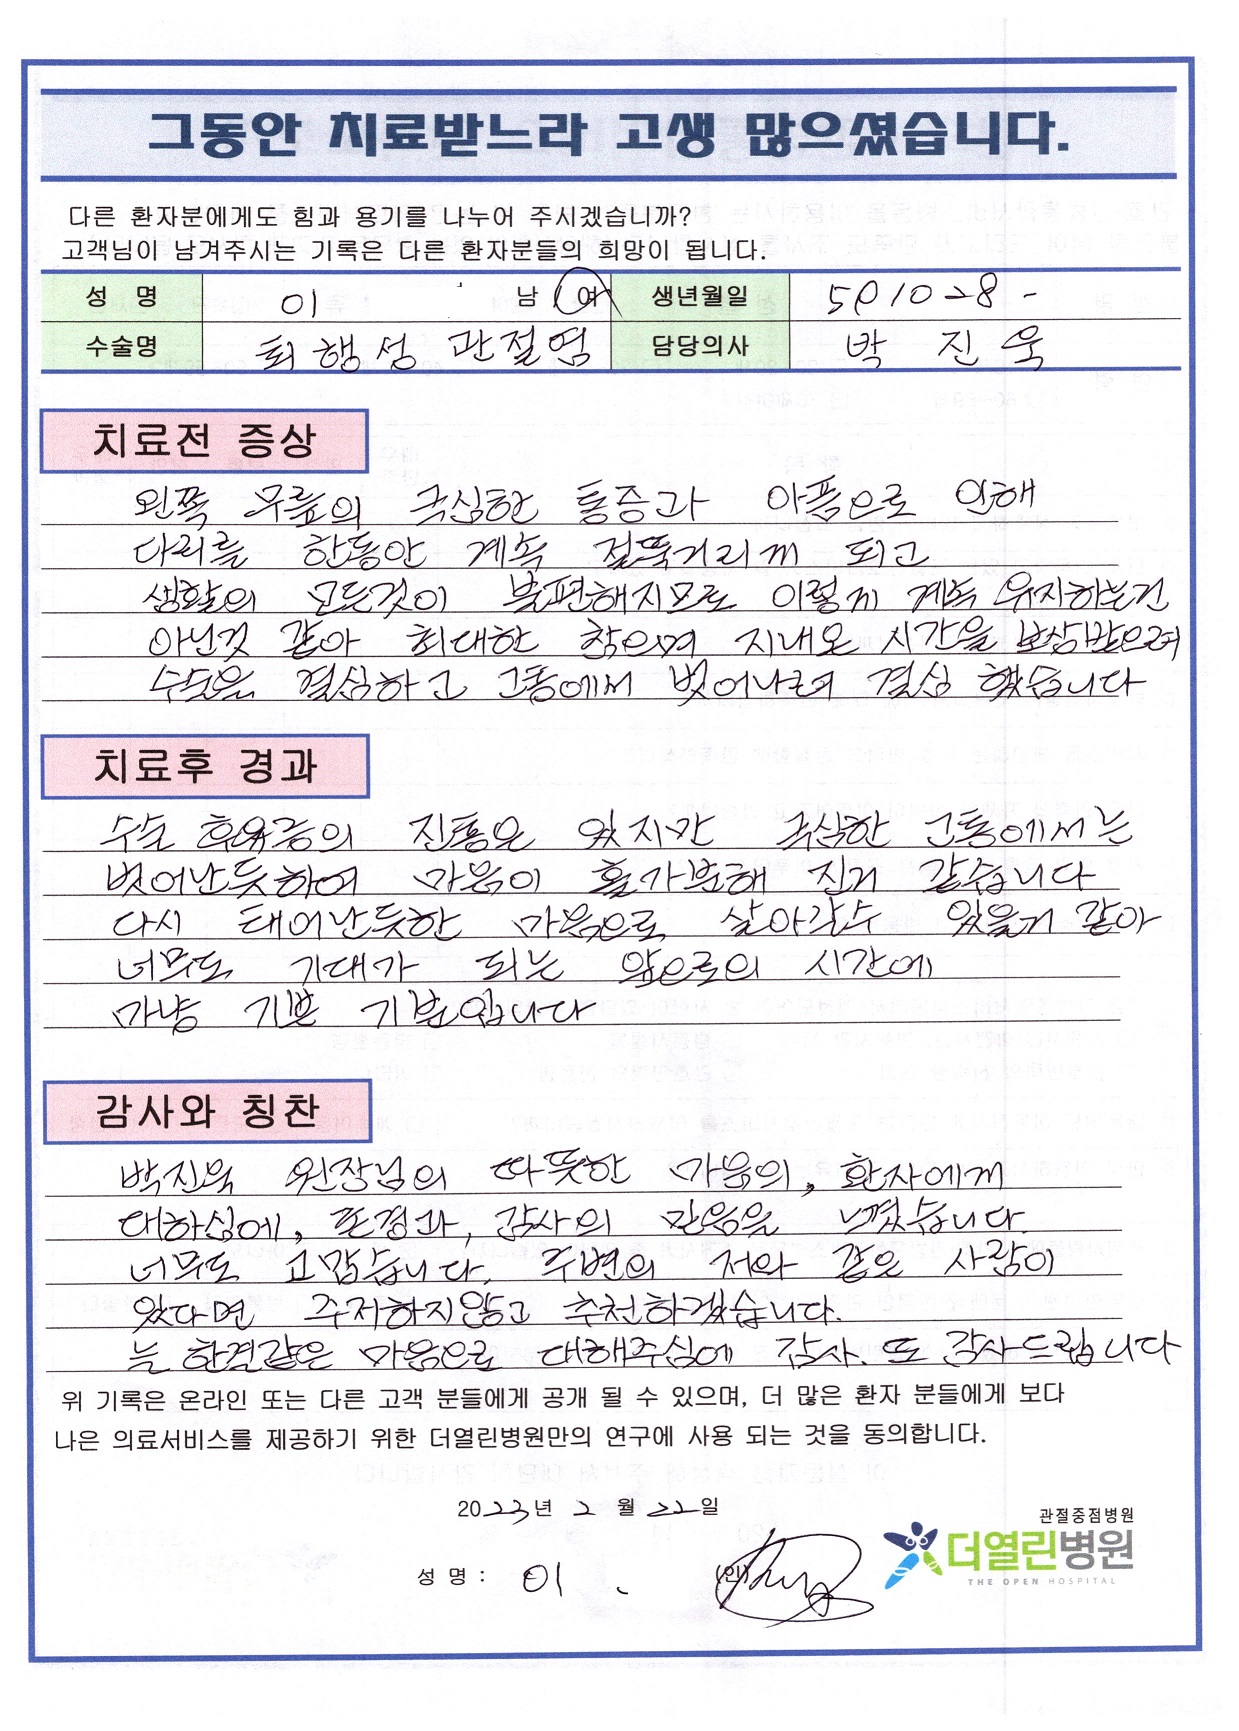 그동안 치료받느라 고생 많으셨습니다.
다른 환자분에게도 힘과 용기를 나누어 주시겠습니까?
고객님이 남겨주시는 기록은 다른 환자분들의 희망이 됩니다.
성 명 이 남 여 생년월일 591028-
수술명 퇴행성 관절염 담당의사 박 진 욱
치료전 증상
왼쪽 무릎의 극심한 통증과 아픔으로 인해
다리를 한동안 계속 절뚝거리게 되고
생활의 모든것이 불편해지므로 이렇게 계속 유지하는건
아닌것 같아 최대한 참으며 지내온 시간을 보상받으려
수술을 결심하고 고통에서 벗어나려 결심 했습니다
치료후 경과
수술 후유증의 진통은 있지만 극심한 고통에서는
벗어난듯하여 마음이 홀가분해 진거 같습니다
다시 태어난듯한 마음으로 살아갈수 있을거 같아
너무도 기대가 되는 앞으로의 시간에
마냥 기쁜 기분입니다
감사와 칭찬
박진욱 원장님의 따뜻한 마음의, 환자에게
대하심에, 존경과, 감사의 믿음을 느꼈습니다.
너무도 고맙습니다. 주변의 저와 같은 사람이
있다면 주저하지않고 추천하겠습니다.
늘 한결같은 마음으로 대해주심에 감사. 또 감사드립니다
위 기록은 온라인 또는 다른 고객 분들에게 공개 될 수 있으며, 더 많은 환자 분들에게 보다
나은 의료서비스를 제공하기 위한 더열린병원만의 연구에 사용 되는 것을 동의합니다.
2023년 2 월 22일
관절중점병원
더열린병원
THE OPEN HOSPITAL
성 명 : 이 (인)